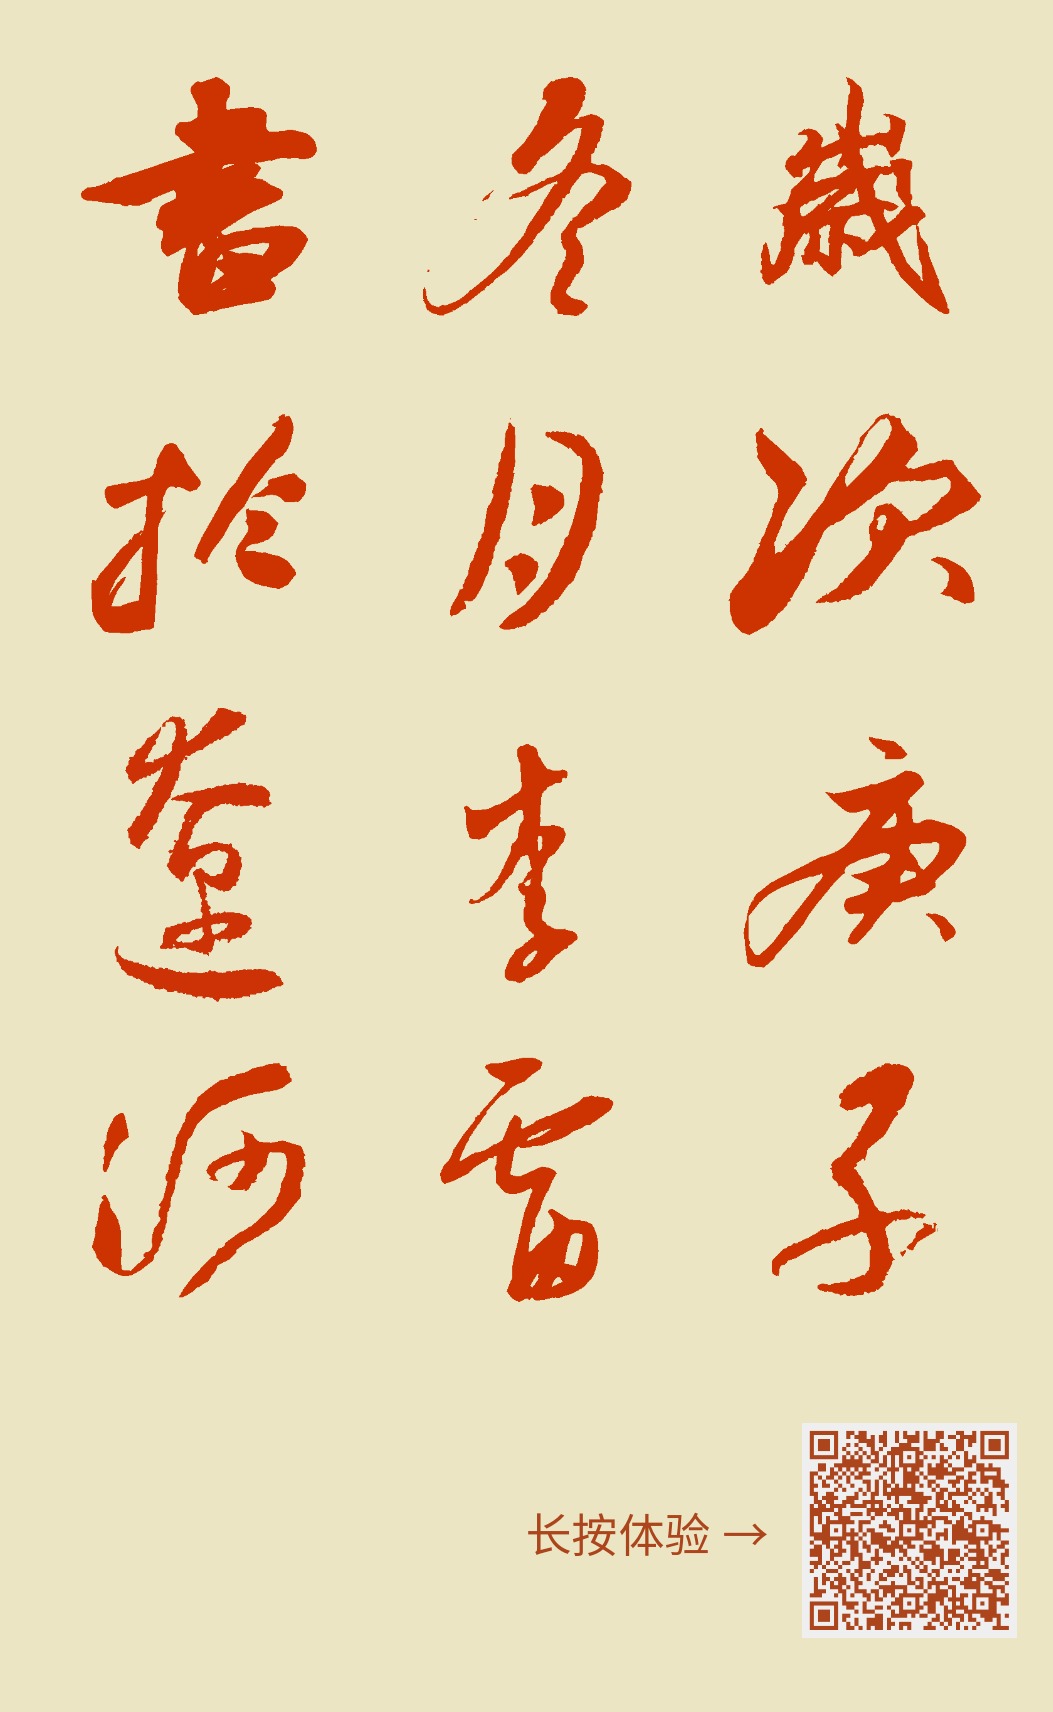 歲次庚子
冬月李雷
書於遼河
长按体验 →